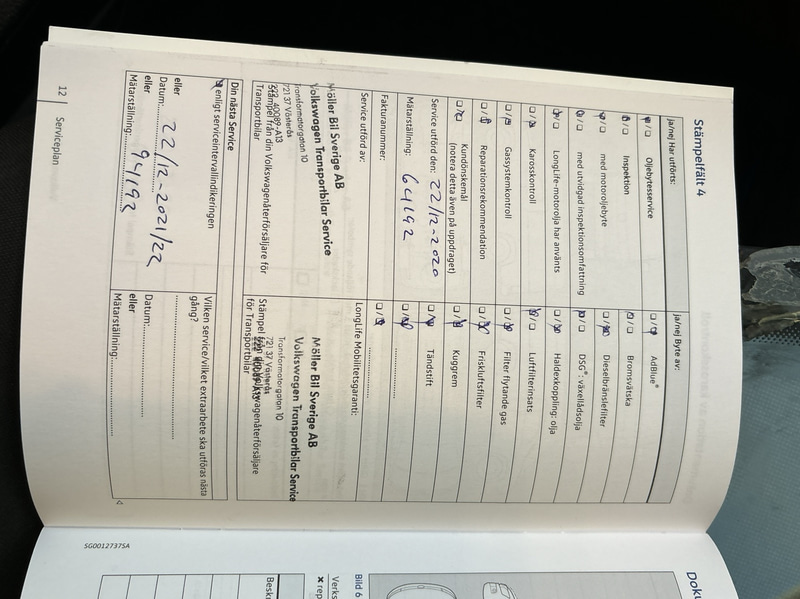 Stämpelfält 4
ja/nej Har utförts:
ja/nej Byte av:
☒/☐ Oljebytesservice
☐/☒ AdBlue®
☒/☐ Inspektion
☒/☐ Bromsvätska
☒/☐ med motoroljebyte
☐/☒ Dieselbränslefilter
☒/☐ med utvidgad inspektionsomfattning
☒/☐ DSG®: växellådsolja
☒/☐ LongLife-motorolja har använts
☐/☒ Haldexkoppling: olja
☐/☒ Karosskontroll
☒/☐ Luftfilterinsats
☐/☒ Gassystemkontroll
☐/☒ Filter flytande gas
☐/☒ Reparationsrekommendation
☐/☒ Friskluftsfilter
☐/☒ Kundönskemål
(notera detta även på uppdraget)
☐/☒ Kuggrem
Service utförd den: 22/12-2020
☐/☒ Tändstift
Mätarställning: 64192
☐/☒ ....................
Fakturanummer:
☐/☒ ....................
Service utförd av:
LongLife Mobilitetsgaranti:
Möller Bil Sverige AB
Volkswagen Transportbilar Service
Transformatorgatan 10
721 37 Västerås
222 40089-A13
Stämpel från din Volkswagenåterförsäljare för
Transportbilar
Möller Bil Sverige AB
Volkswagen Transportbilar Service
Transformatorgatan 10
721 37 Västerås
222 40089-A13
Stämpel från din Volkswagenåterförsäljare
för Transportbilar
Din nästa Service
☒ enligt serviceintervallindikeringen
eller
Datum: 22/12-2021/22
eller
Mätarställning: 94192
Vilken service/vilket extraarbete ska utföras nästa
gång?
....................
Datum:....................
eller
Mätarställning:....................
12 | Serviceplan
SG0012737SA
Doku
Bild 6
Verks
× rep
Besk